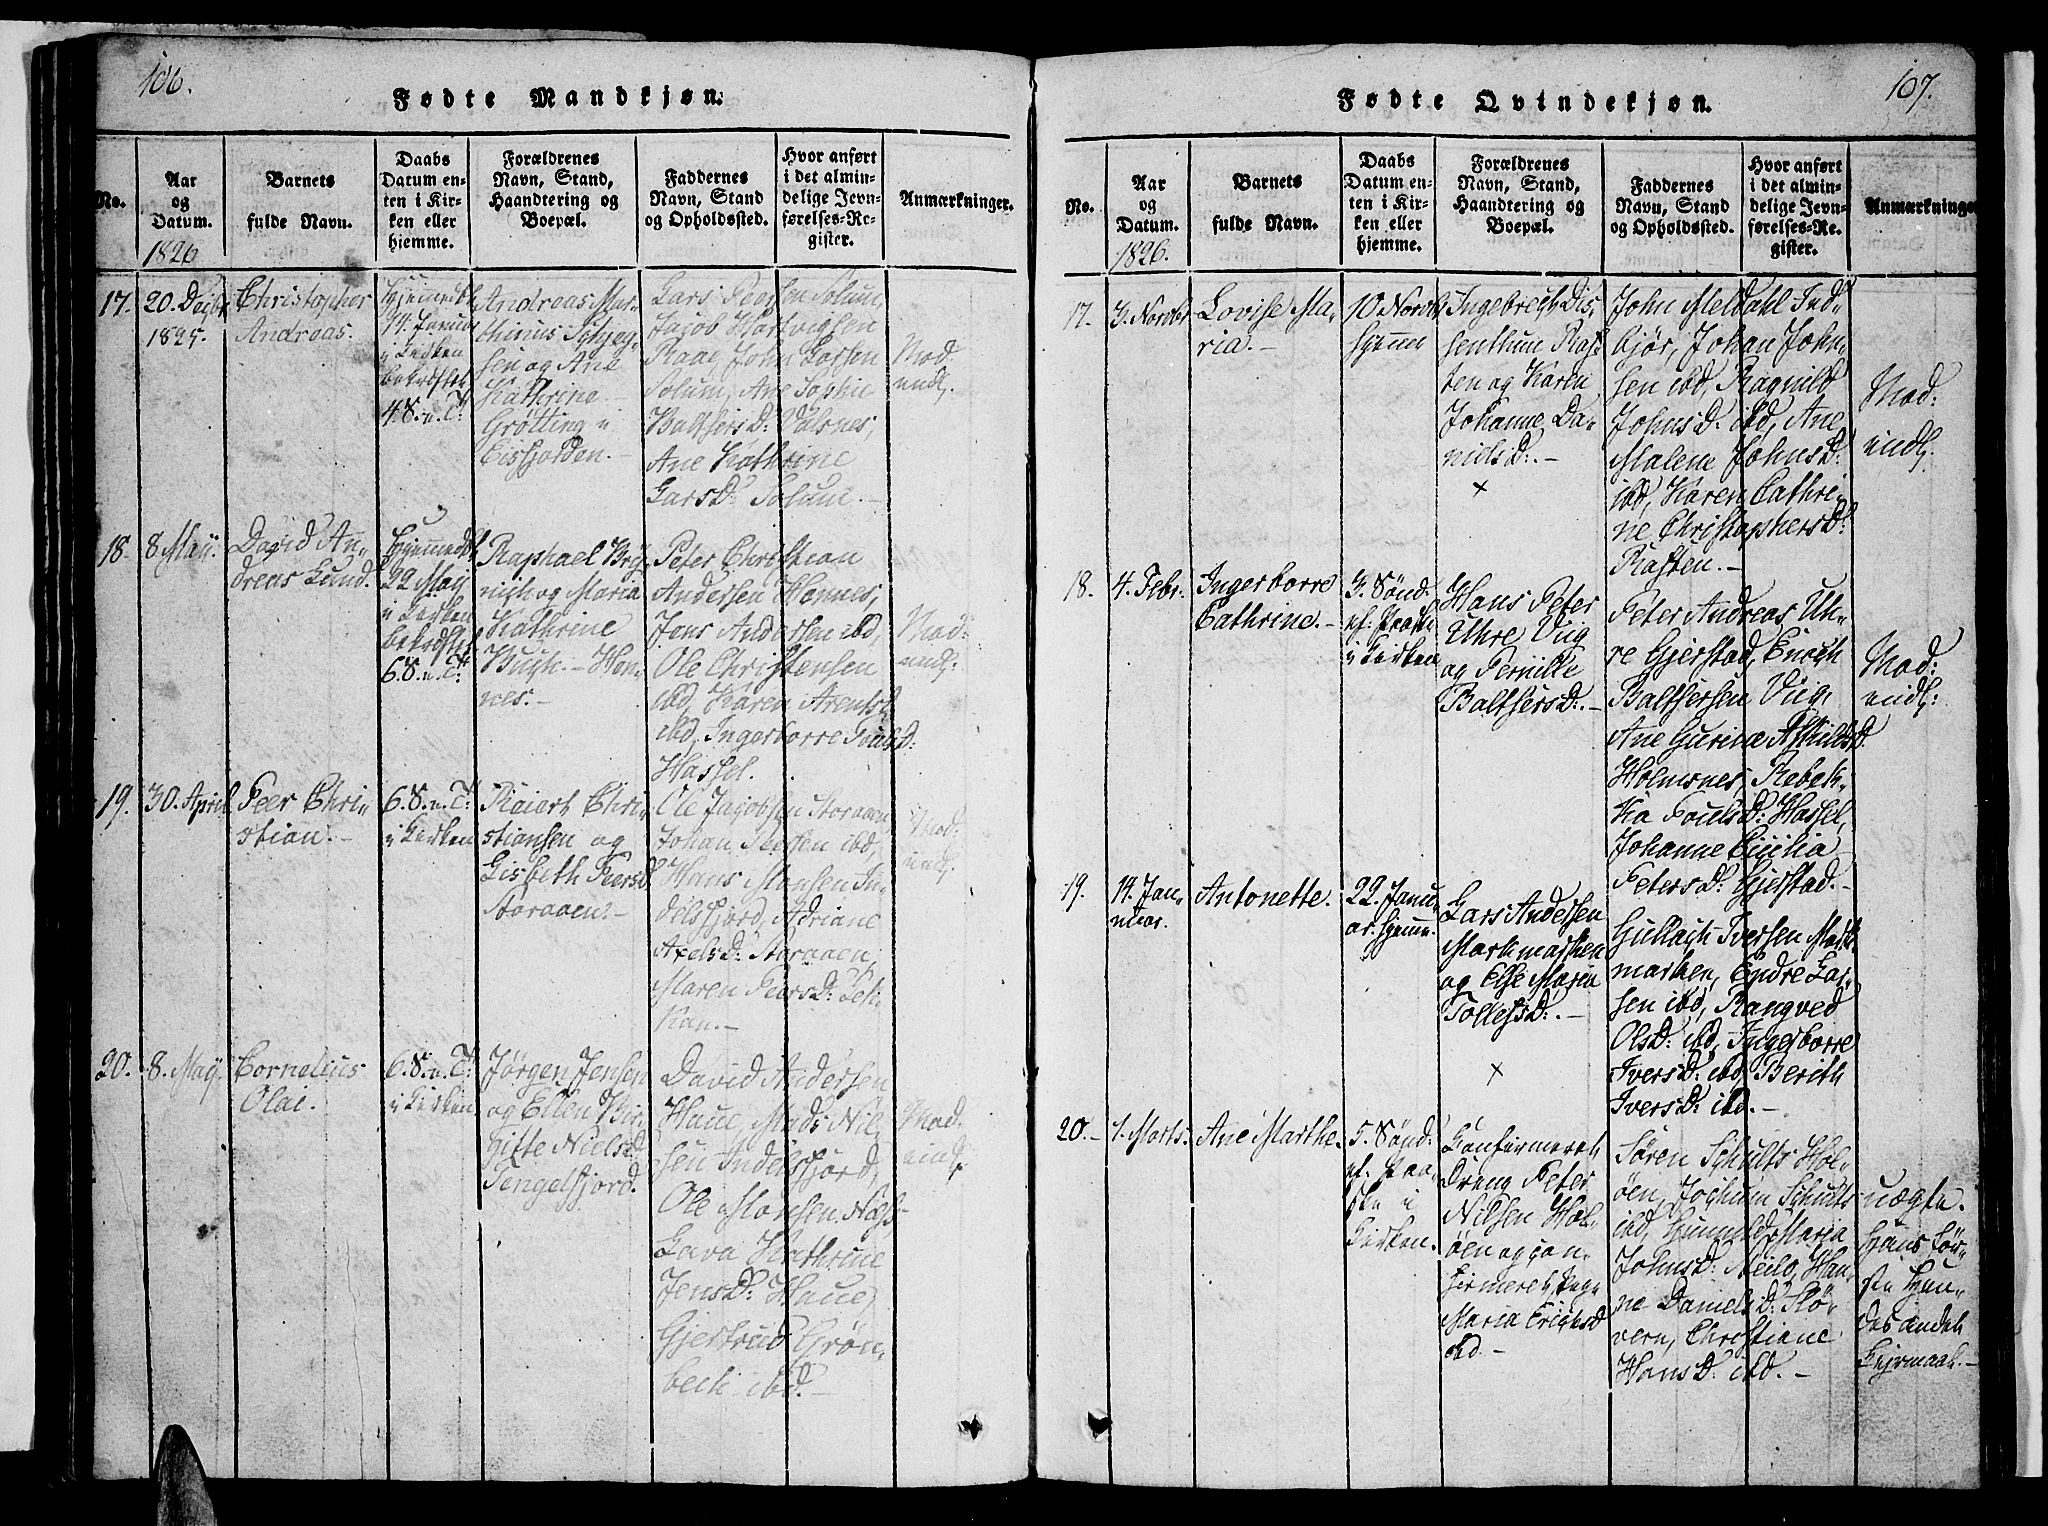 106.
Fødte Mandkjøn.
No.
Aar
og
Datum.
1826
Barnets
fulde Navn.
Daabs
Datum en-
ten i Kir-
ken eller
hjemme.
Forældrenes
Navn, Stand,
Haandtering og
Boepæl.
Faddernes
Navn, Stand
og Opholdssted.
Hvor anført
i det almin-
delige Jevn-
førelses-Re-
gister.
Anmærkninger.
17.
20. Decbr
1825.
Christopher
Andreas.
Hjemmedbt
14. Januar
i Kirken
bekræftet
4. S. e. T:
Andreas Mar-
thinus
sen og Ane
Kathrine
Grøtting i
Eisfjorden.
Lars Peersen Solum,
Jacob Hartvigsen
Raae, John Larsen
Solum, Ane Sophie
Baltsersd: Valsnes,
Ane Kathrine
Larsd: Solum.
Mod:
indl.
18.
8 Maij.
David An-
dreas Lund.
Hjemmedbt
22 Maij
i Kirken
bekræftet
6. S. e. T:
Raphael
og Maria
Kathrine
Bugh. Hem-
nes.
Peter Christian
Andersen Hemnes,
Jens Andersen ibd,
Ole Christensen
ibd, Karen Arentsd:
ibd, Ingerborre Pouelsd:
Hassel.
Mod:
indl:
19.
30. April
Peer Chri-
stian.
6. S. e. T:
i Kirken
Reiert Chri-
stiansen og
Lisbeth Peersd:
Storaaen.
Ole Jacobsen Storaaen,
Johan Peersen ibd,
Hans Monsen In-
delsfjord, Adriane
Axelsd: Storaaen,
Maren Peersd: Lek-
kan.
Mod:
indl:
20.
8. Maij.
Cornelius
Olai.
6. S. e. T:
i Kirken
Jørgen Jensen
og Ellen Bir-
gitte Nielsd:
Tengelfjord.
David Andersen
Haue, Mads Nil-
sen Indelsfjord,
Ole Monsen Næss
Lava Kathrine
Jensd: Haue,
Gjertrud Grøn-
bech ibd.
Mod:
indl.
107.
Fødte Qvindekjøn.
No.
Aar
og
Datum.
1826.
Barnets
fulde Navn.
Daabs
Datum en-
ten i Kir-
ken eller
hjemme.
Forældrenes
Navn, Stand,
Haandtering og
Boepæl.
Faddernes
Navn, Stand
og Opholdssted.
Hvor anført
i det almin-
delige Jevn-
førelses-Re-
gister.
Anmærkninge
17.
3. Novbr
Lovise Ma-
ria.
10 Novbr
hjemme
Ingebregt Dis-
senthum Ras-
ten og Karen
Johanne Da-
nielsd:
×
John Meldahl Ind-
bjør, Johan John-
sen ibd, Ragnild
Johnsd: ibd, Ane
Malene Johnsd:
ibd, Karen Cathri-
ne Christophersd:
Rasten.
Mod:
indl.
18.
4. Febr.
Ingerborre
Cathrine.
3. Sønd:
ef: Paaske
i Kirken
Hans Peter
Uthre Viig
og Pernille
Baltsersd:
Peter Andreas Uth-
re Gjerstad, Enoch
Baltsersen Viig,
Ane Gurine
Holmsnes, Rebek-
ka Pouelsd: Hassel,
Johanne Cicilia
Petersd: Gjerstad.
Mod:
indl:
19.
14. Jan-
nuar.
Antonette.
22. Janu-
ar. hjemme.
Lars Andersen
Markmarken
og Else Maria
Tollefsd:
×
Gullach Iversen Mark-
marken, Endre Lar-
sen ibd, Rangved
Olsd: ibd, Ingerborre
Iversd: ibd, Berith
Iversd: ibd.
20.
1. Marts.
Ane Marthe.
5. Sønd:
ef: Paa-
ske i
Kirken.
Confirmeret
Dreng Peter
Nilsen Hol-
øen og con-
firmeret Pige
Maria Erichsd
ibd.
Søren Schults Hol-
øen, Jochum Schults
ibd, Gunnild Maria
Johnsd: Meilo, Han-
ne Danielsd: Flø-
vern, Christiane
Hansd: ibd.
uægte.
hans før-
ste hen-
des andet
Leiermaal.